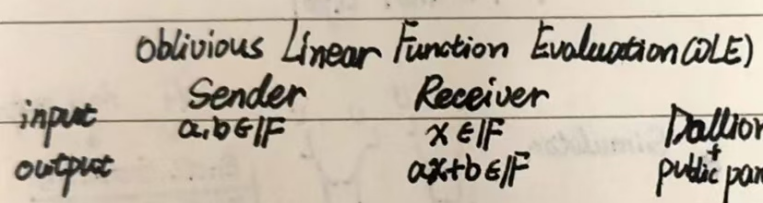 Oblivious Linear Function Evaluation (OLE)
Sender Receiver
input a,b∈F x∈F
output ax+b∈F public